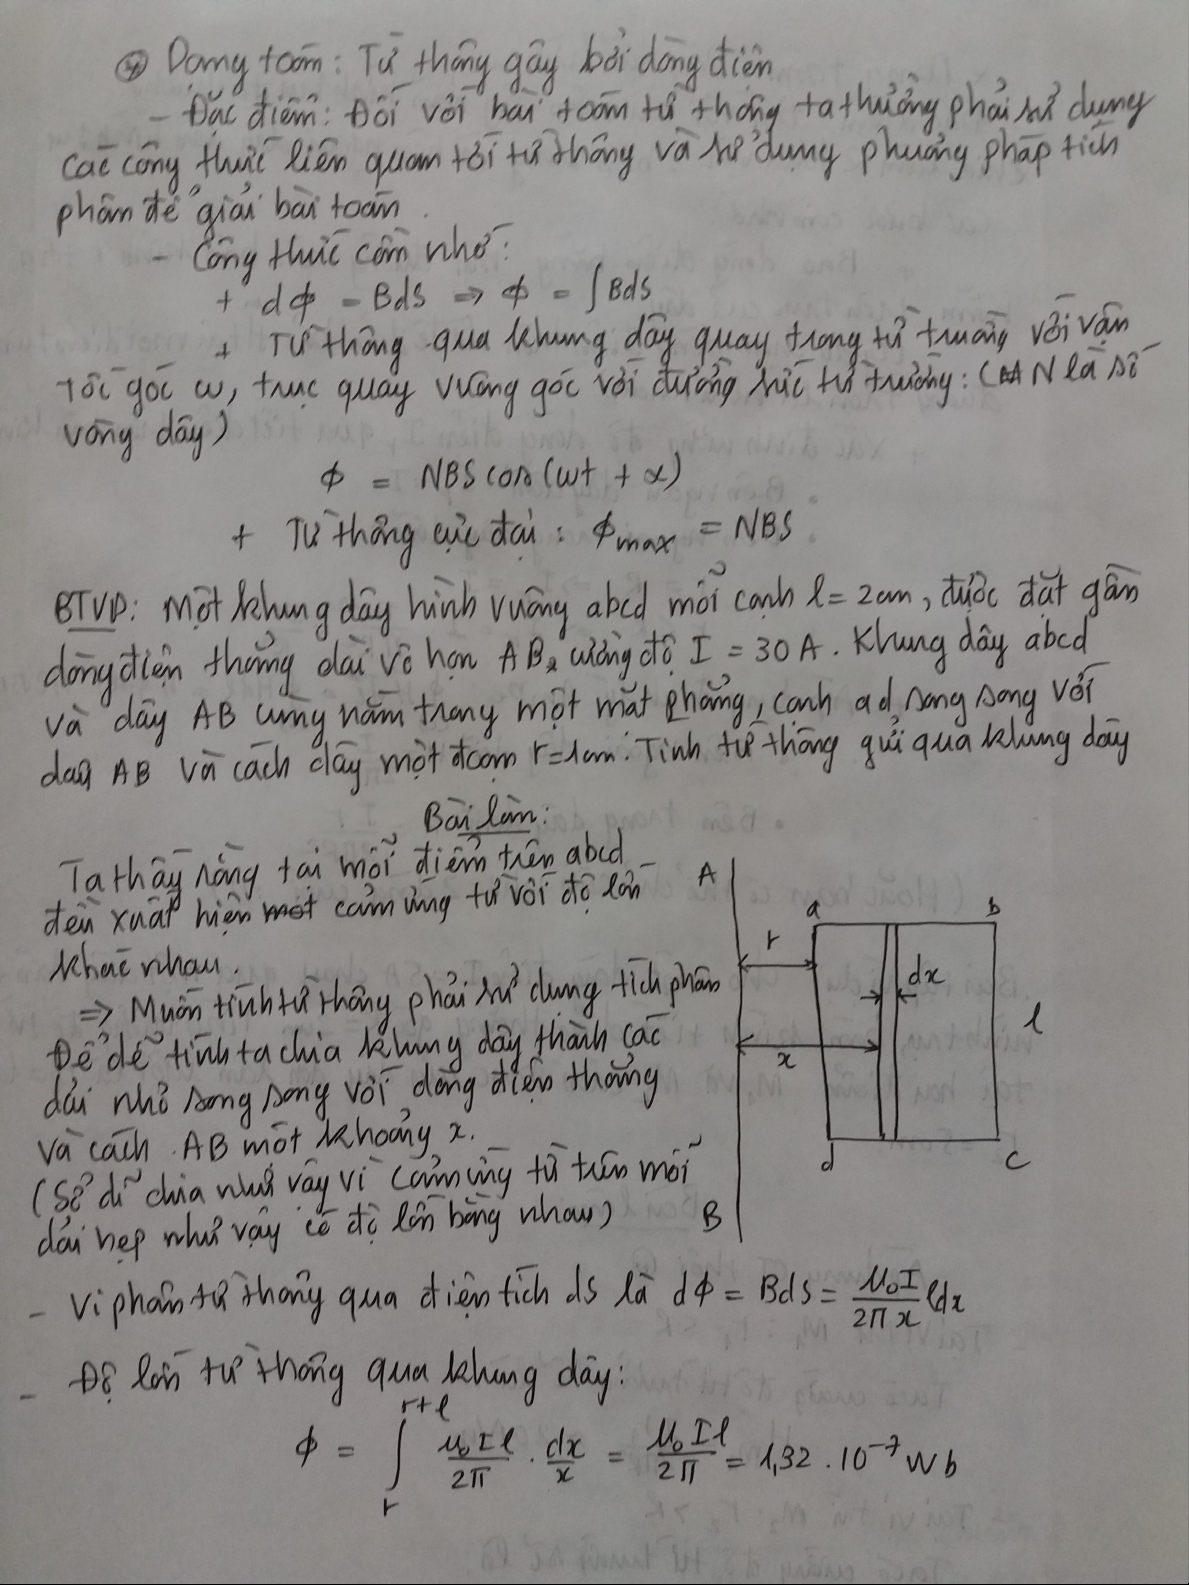 * Dạng toán: Từ thông gây bởi dòng điện
- Đặc điểm: Đối với bài toán từ thông ta thường phải sử dụng
các công thức liên quan tới từ thông và sử dụng phương pháp tích
phân để giải bài toán.
- Công thức cần nhớ:
+ dϕ = BdS ⇒ ϕ = ∫BdS
+ Từ thông qua khung dây quay trong từ trường với vận
tốc góc ω, trục quay vuông góc với đường sức từ trường: (N là số
vòng dây)
ϕ = NBS cos(ωt + α)
+ Từ thông cực đại: ϕmax = NBS
BTVD: Một khung dây hình vuông abcd mỗi cạnh l = 2cm, được đặt gần
dòng điện thẳng dài vô hạn AB, cường độ I = 30A. Khung dây abcd
và dây AB cùng nằm trong một mặt phẳng, cạnh ad song song với
dây AB và cách dây một đoạn r=1cm. Tính từ thông gửi qua khung dây
Bài làm:
Ta thấy rằng tại mỗi điểm trên abcd
đều xuất hiện một cảm ứng từ với độ lớn
khác nhau.
⇒ Muốn tính từ thông phải sử dụng tích phân
Để dễ tính ta chia khung dây thành các
dải nhỏ song song với dòng điện thẳng
và cách AB một khoảng x.
(Sở dĩ chia như vậy vì cảm ứng từ trên mỗi
dải hẹp như vậy có độ lớn bằng nhau)
A
a
b
r
dx
l
x
d
c
B
- Vi phân từ thông qua điện tích ds là dϕ = BdS = μ₀I/2πx ldx
- Độ lớn từ thông qua khung dây:
ϕ = ∫_r^{r+l} μ₀Il/2π . dx/x = μ₀Il/2π = 1,32 . 10⁻⁷ Wb